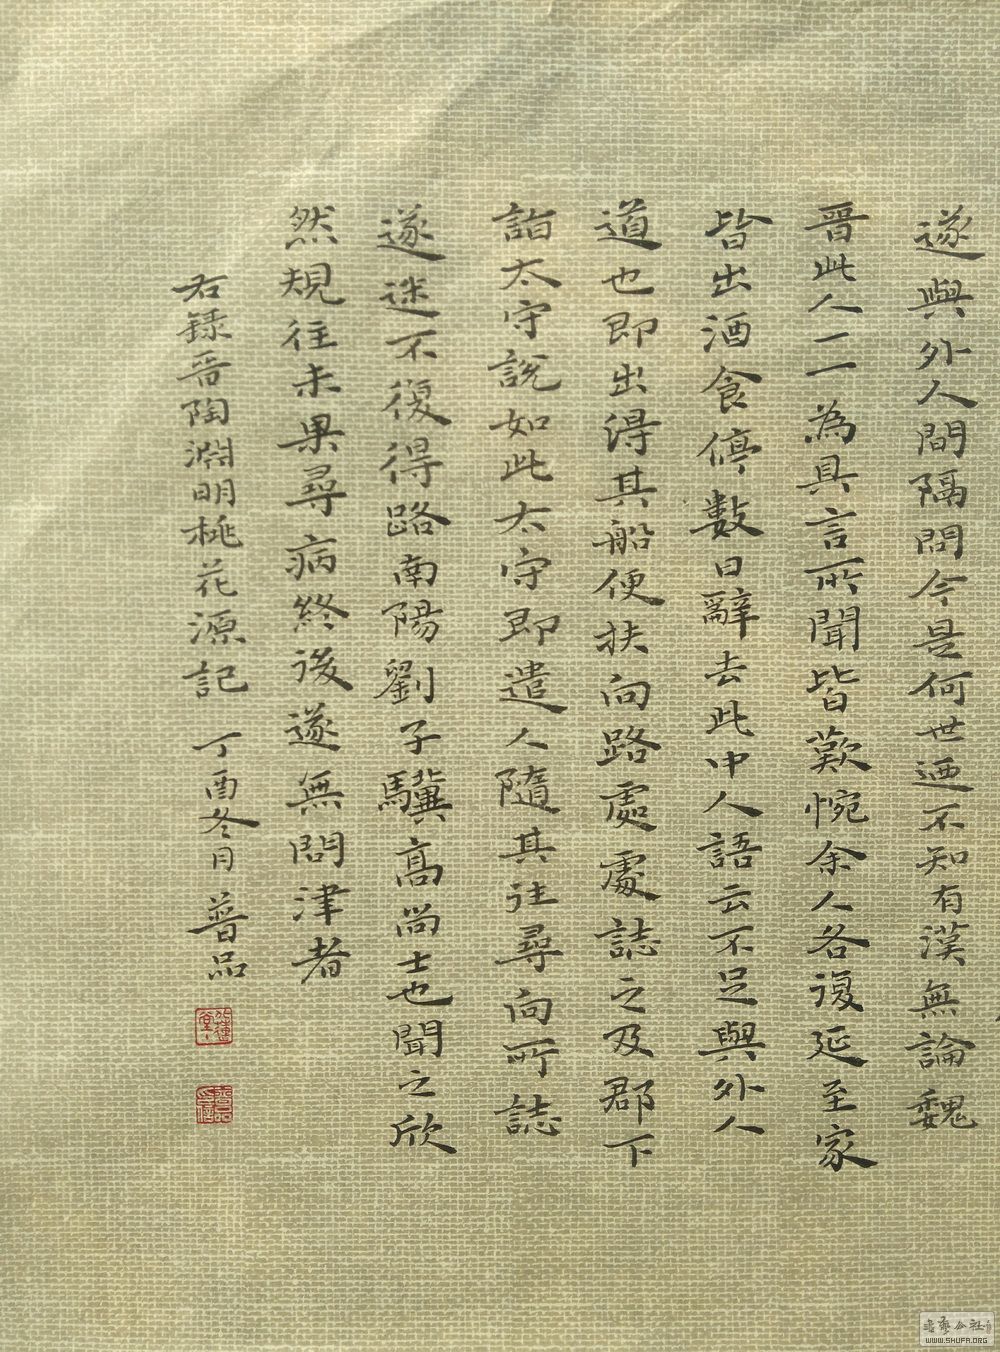 遂與外人間隔問今是何世迺不知有漢無論魏
晋此人一一為具言所聞皆歎惋余人各復延至家
皆出酒食停數日辭去此中人語云不足與外人
道也即出得其船便扶向路處處誌之及郡下
詣太守說如此太守即遣人隨其往尋向所誌
遂迷不復得路南陽劉子驥高尚士也聞之欣
然規往未果尋病終後遂無問津者
右錄晋陶淵明桃花源記 丁酉冬月 普品
WWW.SHUFA.ORG